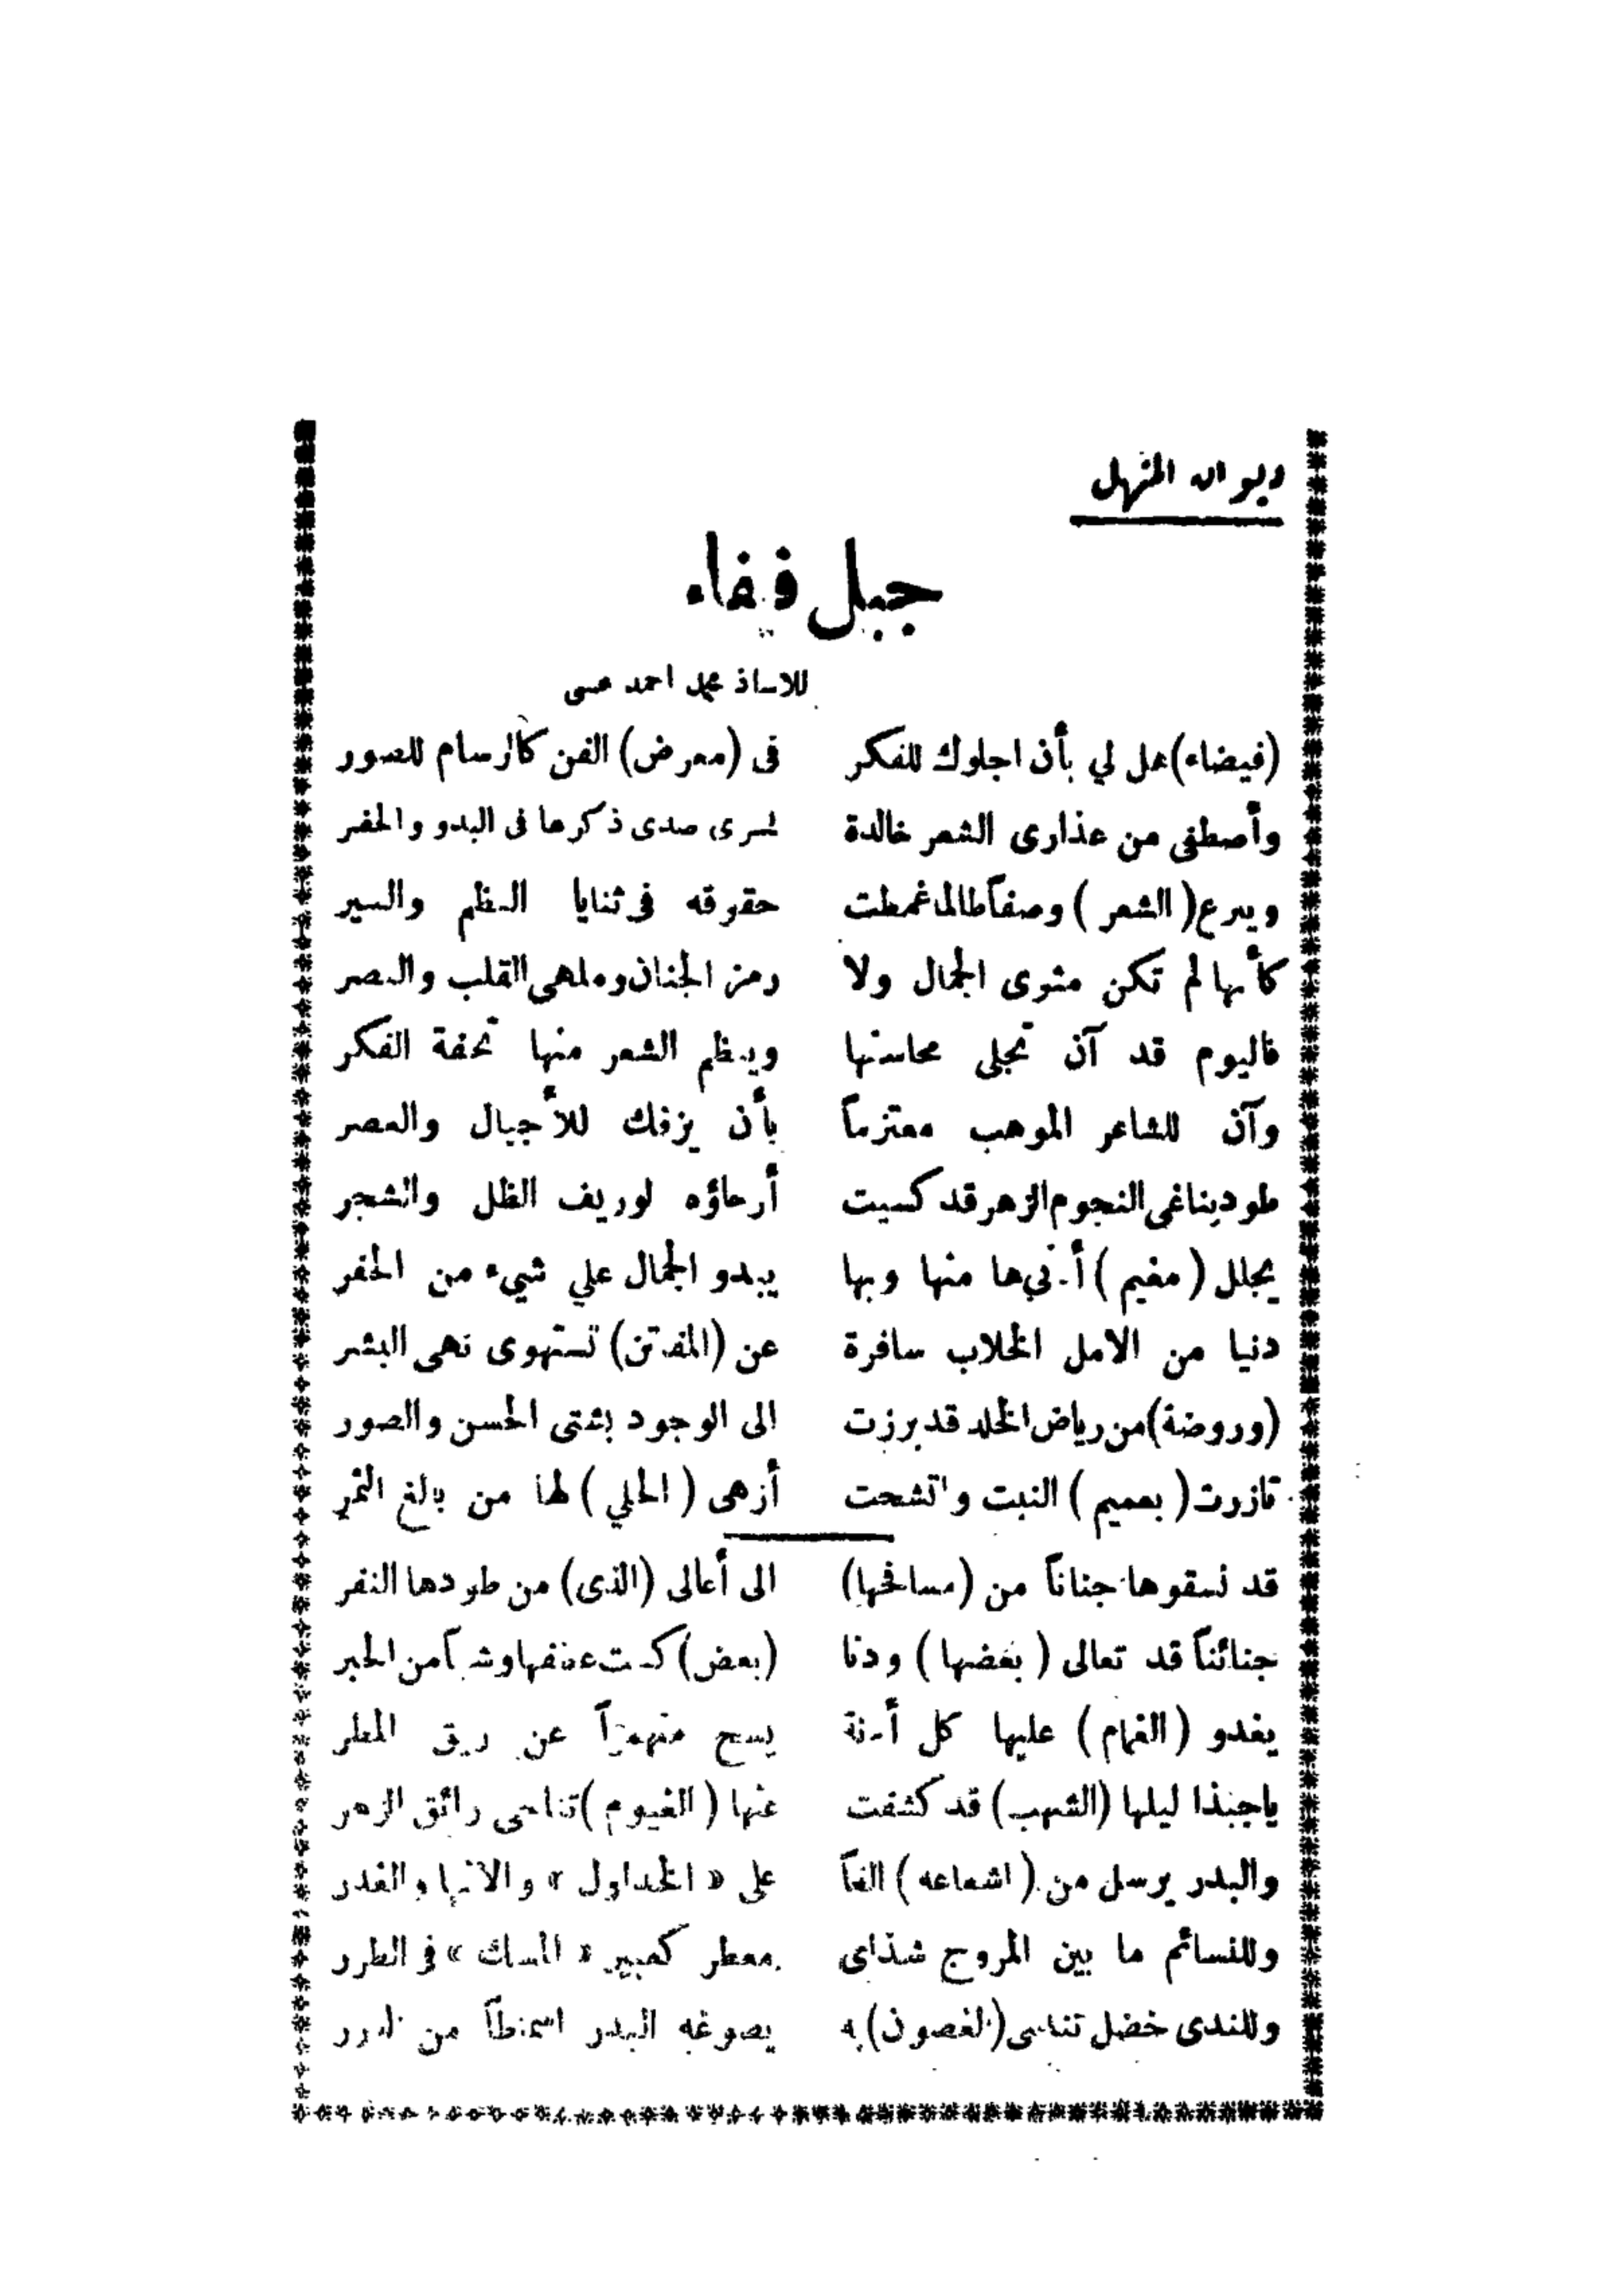 ديوان المنهل
جبل فيفاء
للاستاذ محمد احمد عيسى
(فيضاء) هل لي بأن اجلوك للفكر فى (معرض) الفن كالرسام للصور
وأصطفى من عذارى الشعر خالدة لسرى صدى ذكرها فى البدو والحضر
ويبرع (الشعر) وصفاً طالما غمطت حقوقه فى ثنايا النظم والسير
كأنها لم تكن مثوى الجمال ولا رمز الجنان وملهى القلب والبصر
فاليوم قد آن تجلى محاسنها وينظم الشعر منها تحفة الفكر
وآن للشاعر الموهب معتزماً بأن يزفك للأجيال والعصر
طود يناغى النجوم الزهر قد كسيت أرجاؤه لوريف الظل والشجر
يجلل (مغيم) منها وبها يبدو الجمال علي شيء من الخفر
دنيا من الامل الخلاب سافرة عن (المفاتن) تستهوى نهى البشر
(وروضة) من رياض الخلد قد برزت الى الوجود بشتى الحسن والصور
تازرت (بعميم) النبت واتشحت أزهى (الحلي) لها من يالغ الثمر
قد نسقوها جناناً من (مسافحها) الى أعالى (الذى) من طودها النضر
جنائناً قد تعالى (بغضها) ودنا (بعض) من الحبر
يغدو (الغمام) عليها كل آونة يسح منهمراً عن ريق المطر
ياحبذا ليلها (الشهب) قد كشفت عنها (الغيوم) تناجى رائق الزهر
والبدر يرسل من (اشعاعه) الفاً على «الخداول» والانهار والغدر
وللنسائم ما بين المروج شذاى معطر كعبير «المسك» فى الطرر
وللندى خضل تناجى (الغصون) به يصوغه البدر اسماطاً من الدرر